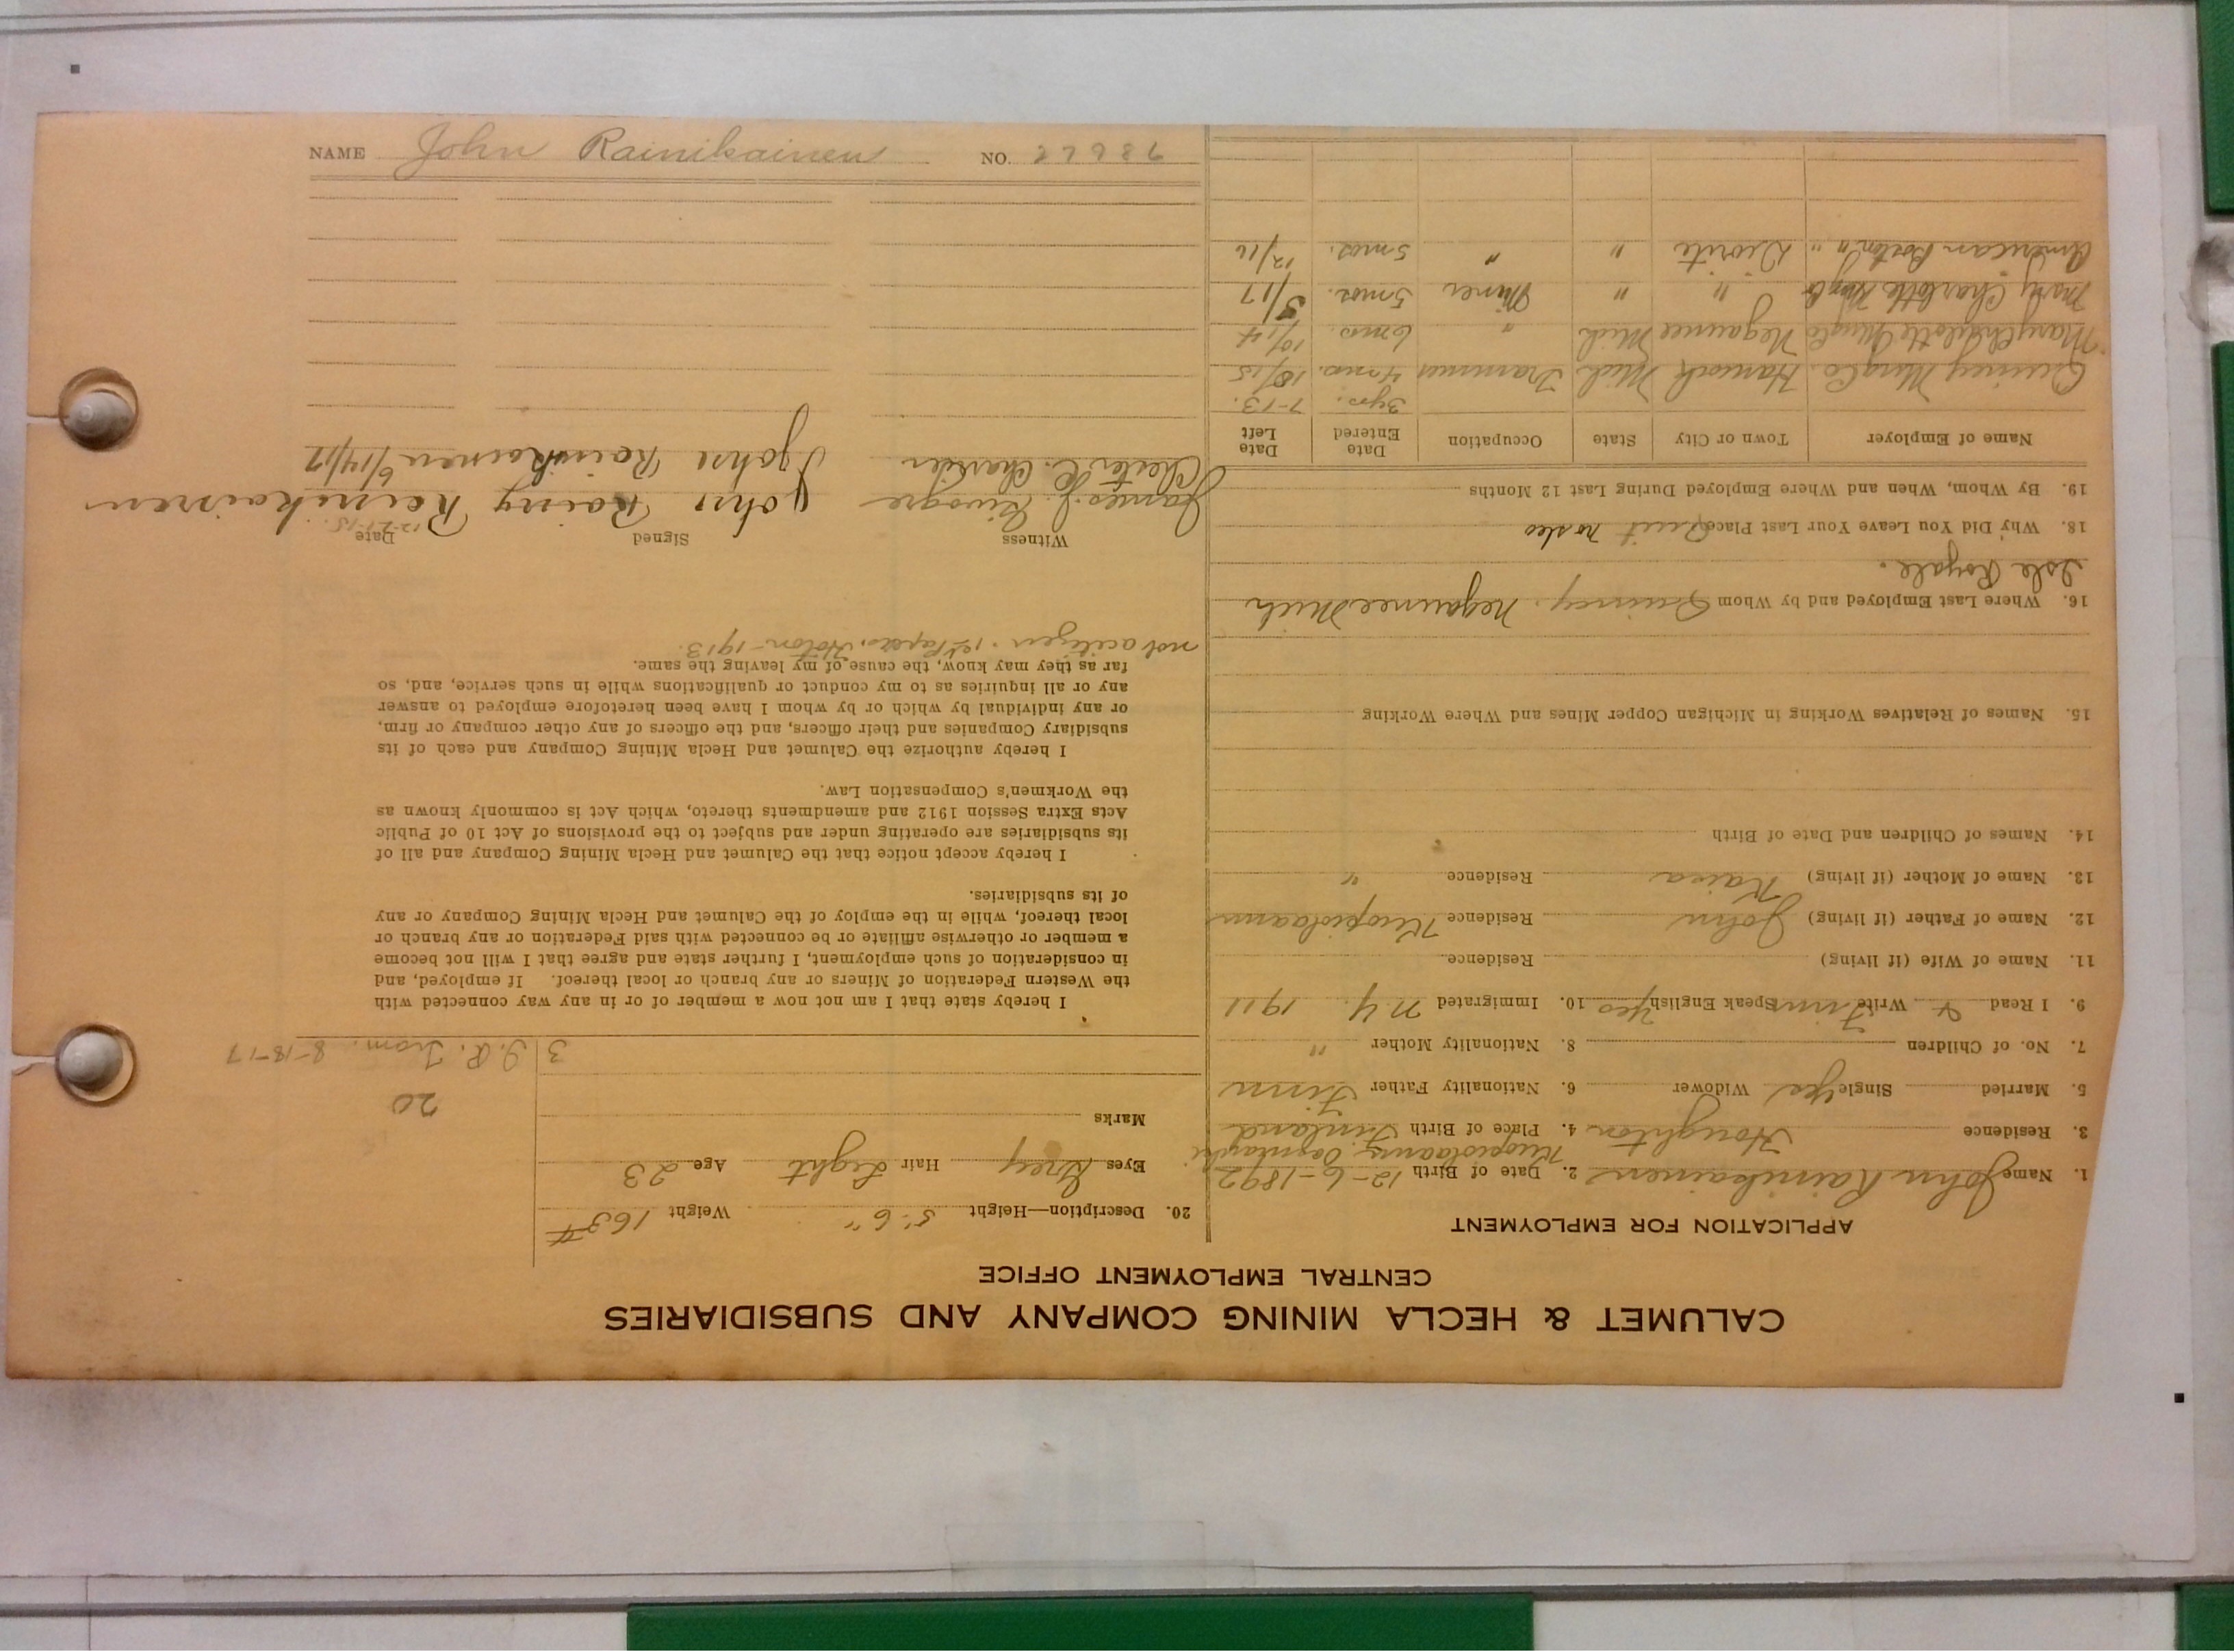 CALUMET & HECLA MINING COMPANY AND SUBSIDIARIES
CENTRAL EMPLOYMENT OFFICE
APPLICATION FOR EMPLOYMENT
1. Name John Rainikainen 2. Date of Birth 12-6-1892
3. Residence Houghton 4. Place of Birth Finland
5. Married Single Yes Widower 6. Nationality Father Finn
7. No. of Children 8. Nationality Mother "
9. I Read & Write Finn Speak English Yes 10. Immigrated N.Y. 1911
11. Name of Wife (if living) Residence
12. Name of Father (if living) John Residence
13. Name of Mother (if living) Kaisa Residence "
14. Names of Children and Date of Birth
15. Names of Relatives Working in Michigan Copper Mines and Where Working
16. Where Last Employed and by Whom Quincy. Negaunee Mich
Isle Royale.
18. Why Did You Leave Your Last Place Quit
19. By Whom, When and Where Employed During Last 12 Months
Name of Employer Town or City State Occupation Date Entered Date Left
3 yrs. 7-13.
Quincy Mng Co. Hancock Mich Trammer 4 mos. 10/15
Mary Charlotte Mng Co Negaunee Mich " 6 mos. 10/14
Mary Charlotte Mng Co " " Miner 5 mos. 5/17
American Boston " Diorite " " 5 mos. 12/16
20. Description—Height 5' 6" Weight 163 #
Eyes Grey Hair Light Age 23
Marks
20
3 I. R. Tram. 8-18-17
I hereby state that I am not now a member of or in any way connected with
the Western Federation of Miners or any branch or local thereof. If employed, and
in consideration of such employment, I further state and agree that I will not become
a member or otherwise affiliate or be connected with said Federation or any branch or
local thereof, while in the employ of the Calumet and Hecla Mining Company or any
of its subsidiaries.
I hereby accept notice that the Calumet and Hecla Mining Company and all of
its subsidiaries are operating under and subject to the provisions of Act 10 of Public
Acts Extra Session 1912 and amendments thereto, which Act is commonly known as
the Workmen's Compensation Law.
I hereby authorize the Calumet and Hecla Mining Company and each of its
subsidiary Companies and their officers, and the officers of any other company or firm,
or any individual by which or by whom I have been heretofore employed to answer
any or all inquiries as to my conduct or qualifications while in such service, and, so
far as they may know, the cause of my leaving the same.
not a citizen. 1st Papers, Hoton-1913.
Witness Signed Date
James. J. John Rainy Reinikainen
Chester C. John Rainikainen 6/14/17
NAME John Rainikainen NO.